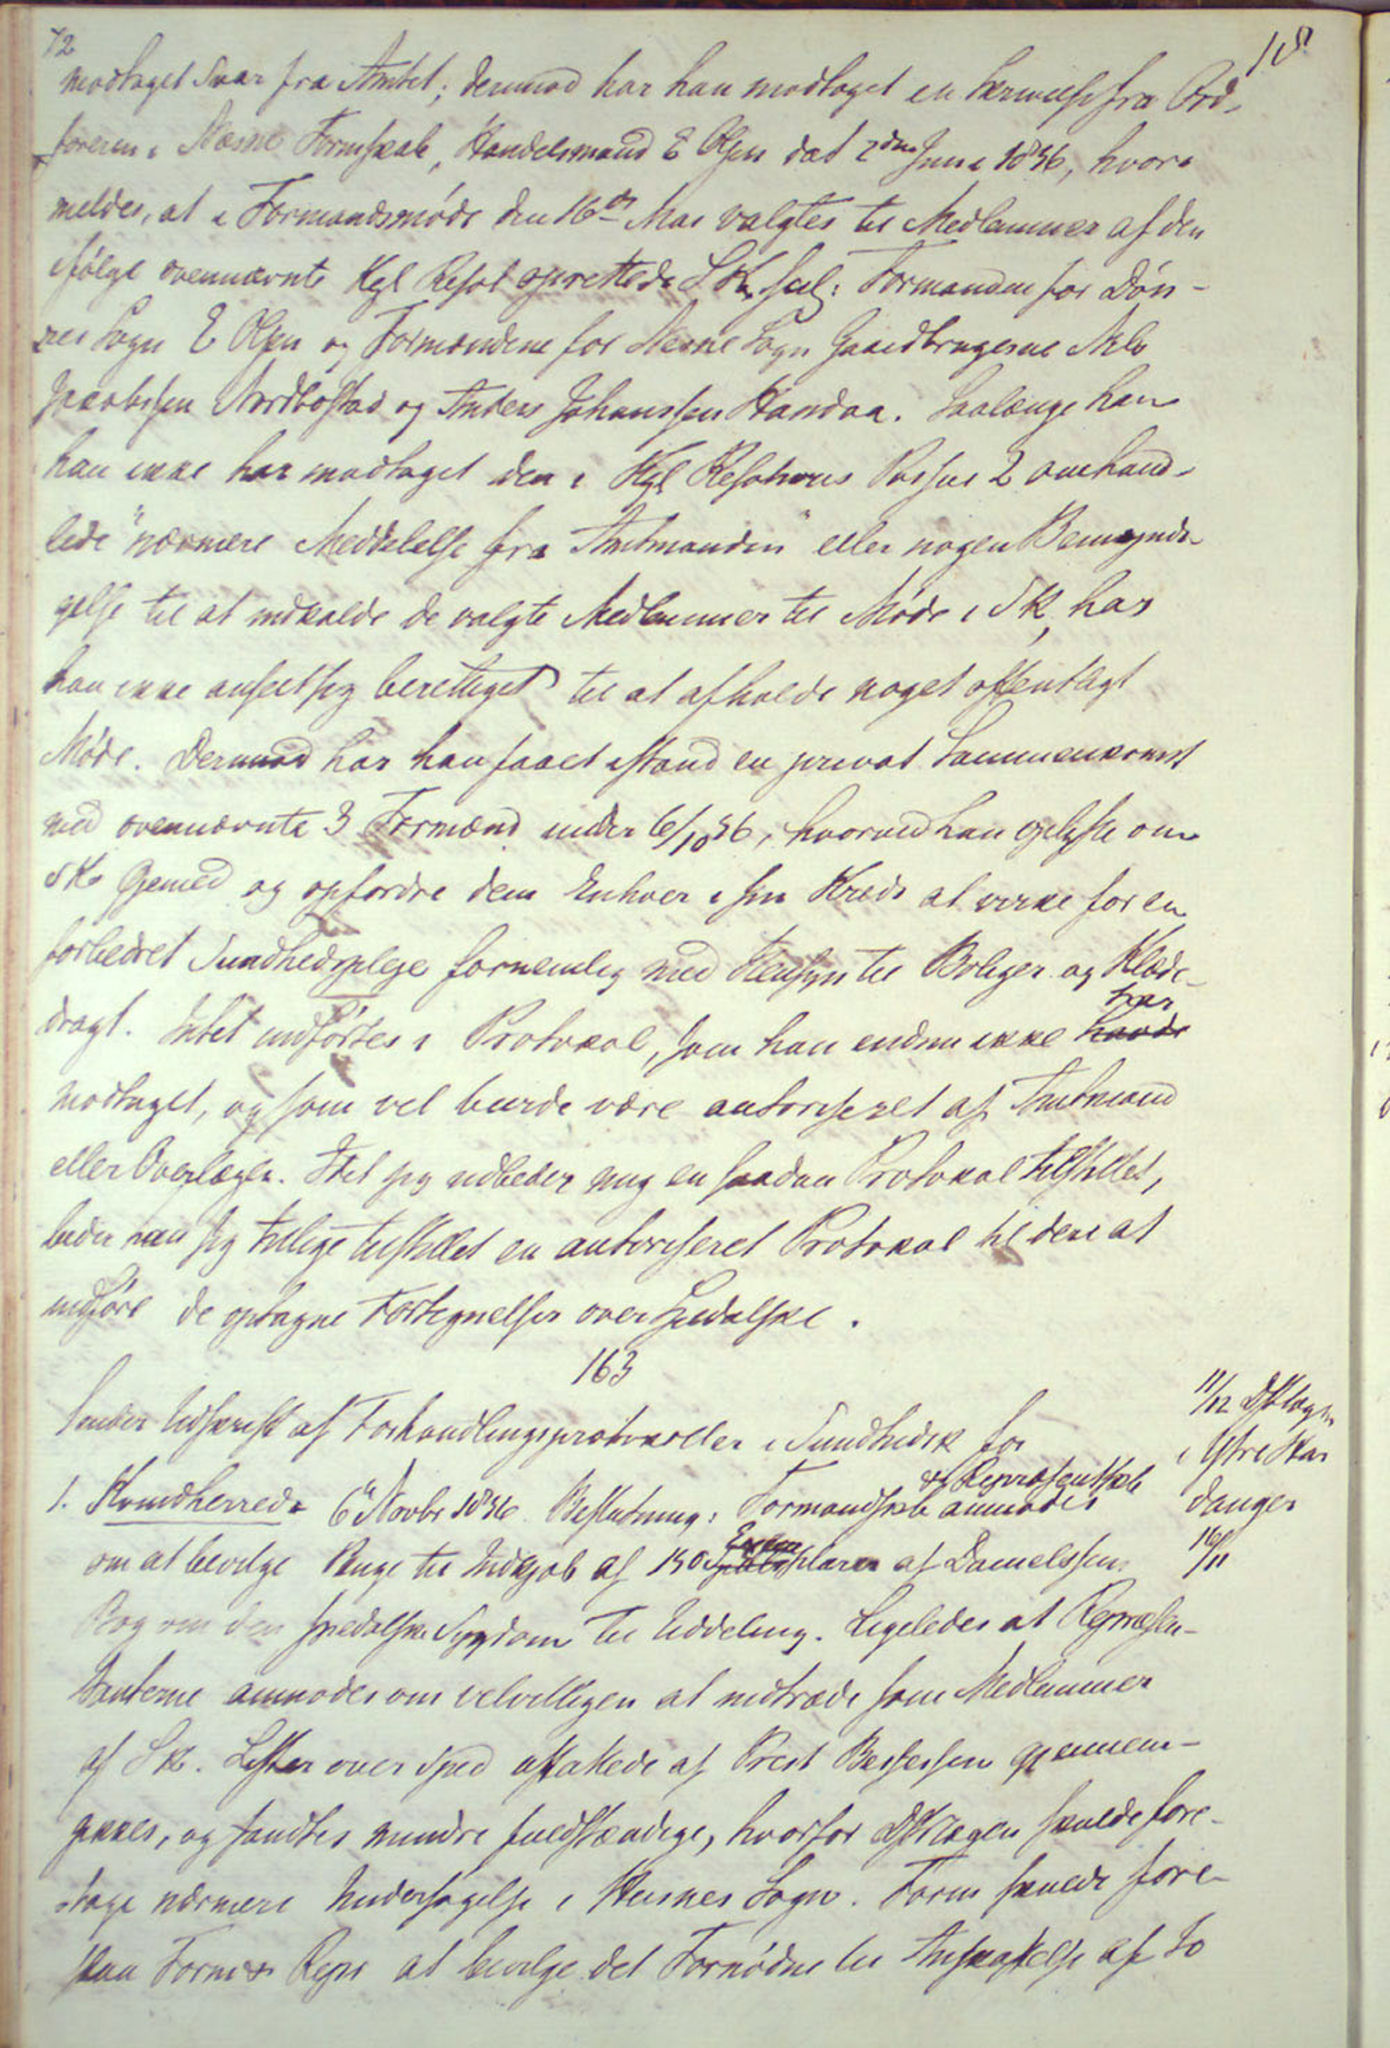 72
modtaget Svar fra Amtet; derimod har han modtaget en Skrivelse fra Ord-
føreren i Næsne Formskab, Handelsmand E Olsen dat 2den Juni 1856, hvori
meldes, at i Formandsmøde den 16de Mai valgtes til Medlemmer af den
ifølge ovennævnte Kgl Resol oprettede SK, flg: Formanden for Døn-
nes Sogn E Olsen og Formændene for Nesne Sogn Gaardbrugerne Nils
Jacobssen Nordbostad og Anders Johanssen Handaa. Saalænge han
han ikke har modtaget den i Kgl Resolutions Passus 2 omhand-
lede "nærmere Meddelelse fra Amtmanden" eller nogen Bemyndi-
gelse til at indkalde de valgte Medlemmer til Møde i SK, har
han ikke anseet sig berettiget til at afholde noget offentligt
Møde. Derimod har han faaet istand en privat Sammenkomst
med ovennævnte 3 Formænd under 6/10 56, hvorved han oplyste om
SKs Øiemed og opfordre dem Enhver i sin Kreds at virke for en
forbedret Sundhedspleje fornemlig med Hensyn til Boliger og Klæde-
dragt. Intet indførtes i Protokol, som han endnu ikke havde har
modtaget, og som vel burde være autoriseret af Amtmand
eller Overlægen. Idet jeg udbeder mig en saadan Protokol tilstillet,
beder han sig tillige tilstillet en autoriseret Protokol til deri at
indføre de optagne Fortegnelser over Spedalske.
163
Sender Udskrift af Forhandlingsprotokoller i Sundhedsk for
11/12 DsLægen
i Ytre Har
danger
16/11
1. Kvindherred. 6te Novbr 1856. Beslutning: Formandskab & Repræsentskb anmodes
om at bevilge Penge til Indkjøb af 150 Exemplarer af Danielssens
Bog om den spedalske Sygdom til Uddeling. Ligeledes at Repræsen-
tanterne anmodes om velvilligen at indtræde som Medlemmer
af SK. Lister over Sped affattede af Præst gjennem-
gikkes, og fandtes mindre fuldstændige, hvorfor DsLægen skulde fore-
tage nærmere Undersøgelse i Husnes Sogn. Form skulde fore-
slaa Form & Repr at bevilge det Fornødne til Anskaffelse af to